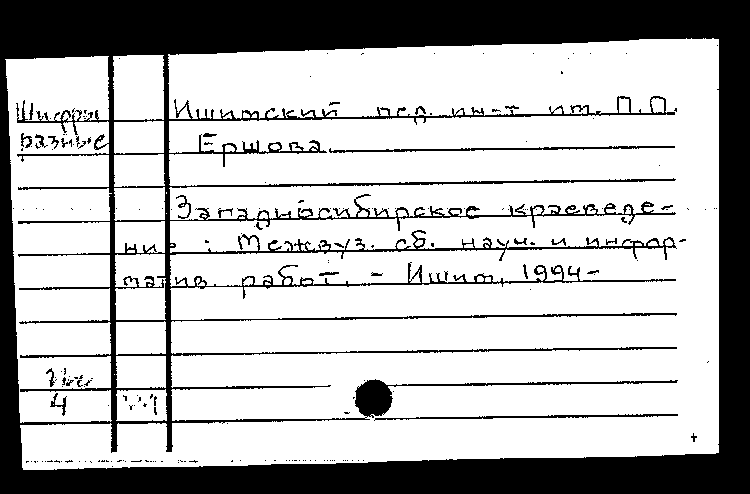 Шифры
разные
Ишимский пед. ин-т им. П.П.
Ершова.
Западносибирское краеведе-
ние : Межвуз. сб. науч. и инфор-
матив. работ. - Ишим, 1994-
4